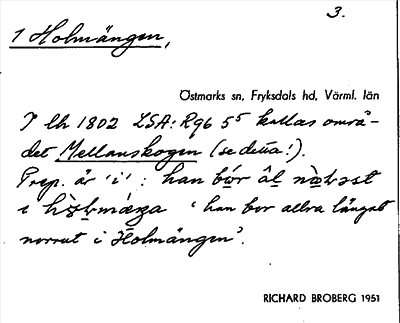 3.
1 Holmängen,
Östmarks sn, Fryksdals hd, Värml. län
I lh 1802 LSA: R96 5⁵ kallas områ-
det Mellanskogen (se detta!).
Prep. är 'i' : han bór ål
i 'han bor allra längst
norrut i Holmängen'.
RICHARD BROBERG 1951